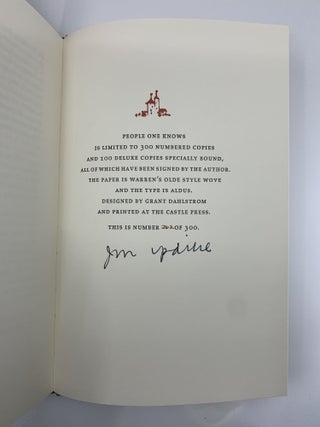 PEOPLE ONE KNOWS
IS LIMITED TO 300 NUMBERED COPIES
AND 100 DELUXE COPIES SPECIALLY BOUND,
ALL OF WHICH HAVE BEEN SIGNED BY THE AUTHOR.
THE PAPER IS WARREN'S OLDE STYLE WOVE
AND THE TYPE IS ALDUS.
DESIGNED BY GRANT DAHLSTROM
AND PRINTED AT THE CASTLE PRESS.
THIS IS NUMBER 202 OF 300.
John Updike